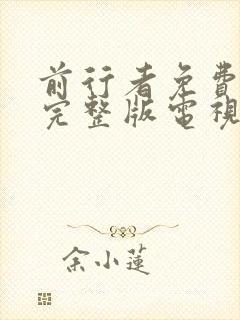 前行者免費
完整版電視
余小蓮